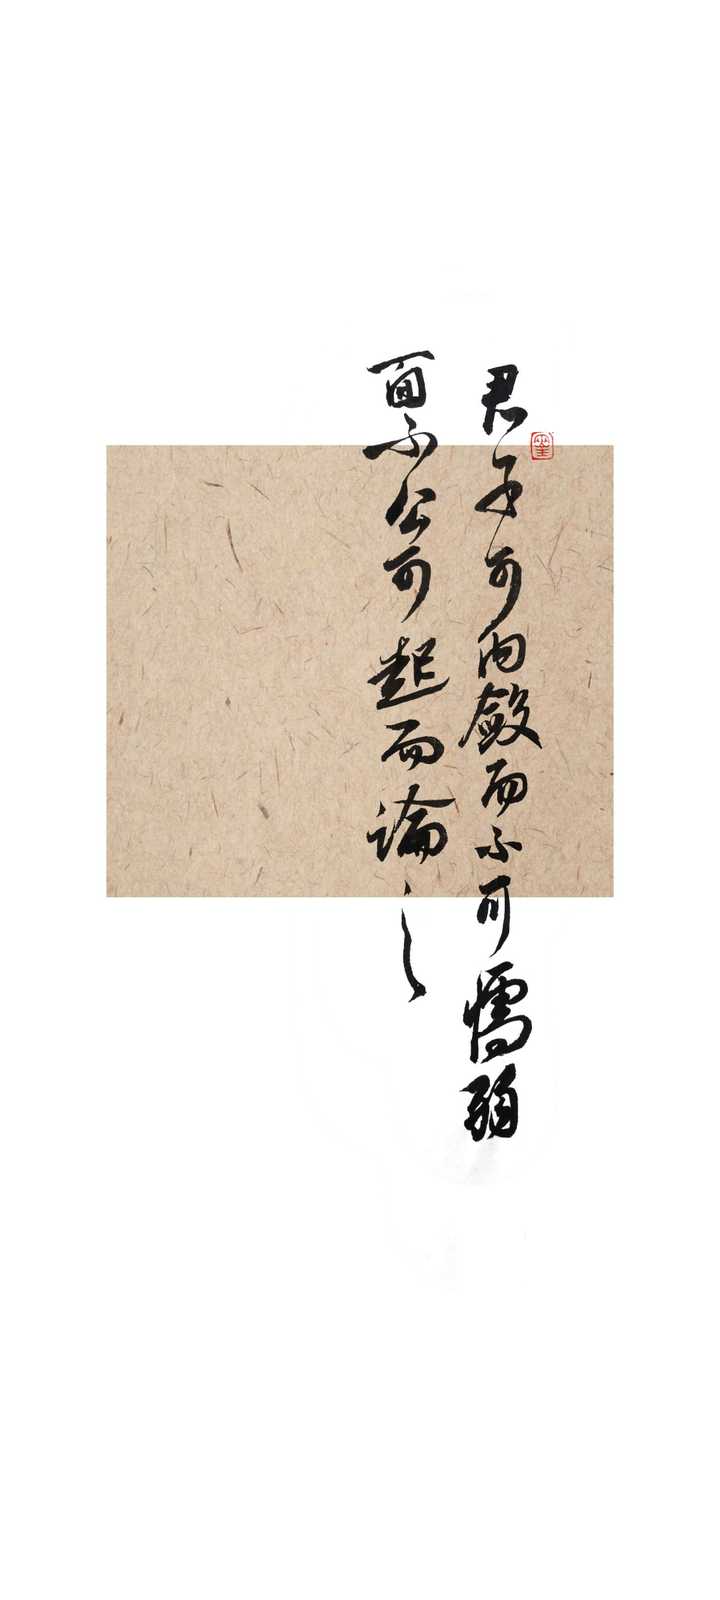 君子可内敛而不可懦弱
面不公可起而論之